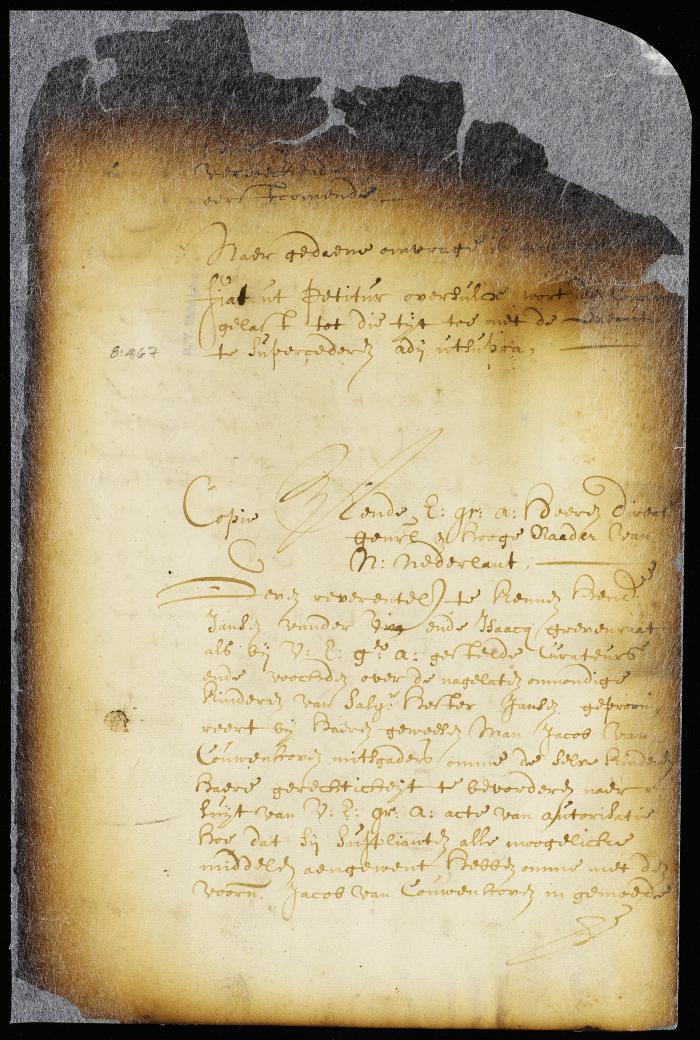 versoeckend
eerstcomende
Naer gedaene omvrage is
fiat ut petitur oversulcx wort de
gelast tot die tijt toe met de
8:467
te supercederen adij utsupra,
Copie
Aende E: gr: a: Heeren Direct
Generl en Hooge Raaden van
N: Nederlant,
Geven reverentel) te kennen Hend
Jansen vander Vin ende Isaacq grevenraat
als bij U: E: gre a: gestelde Curateurs
ende voochden over de nagelaten onmondige
kinderen van Salgr Hester Jansen geprocu
reert bij haeren geweesen Man Jacob van
Couwenhoven mitsgaders omme de selve kinderen
haere gerechticheijt te bevorderen naer
luijt van U: E: gr: a: acte van autorisatie
hoe dat sij supplianten alle moogelicke
middelen aengewent hebben omme met den
voorn. Jacob van Couwenhoven in gemoede